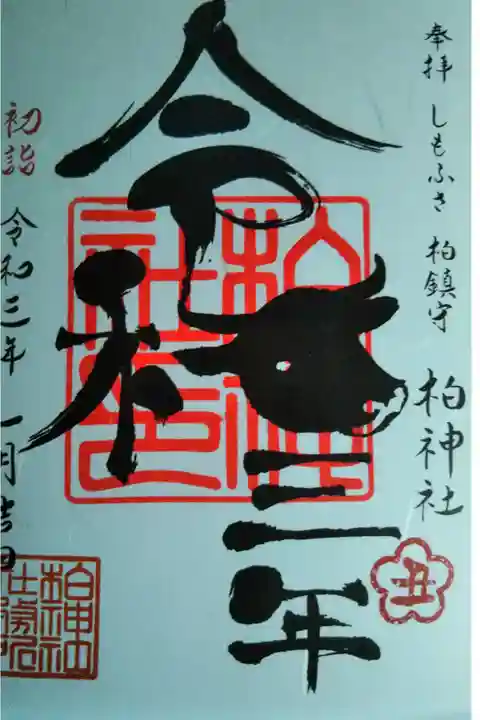 奉拝 しもふさ 柏鎮守
柏神社
丑
令和
三年
初詣 令和三年 一月吉日
柏神社印
柏神社
社務所